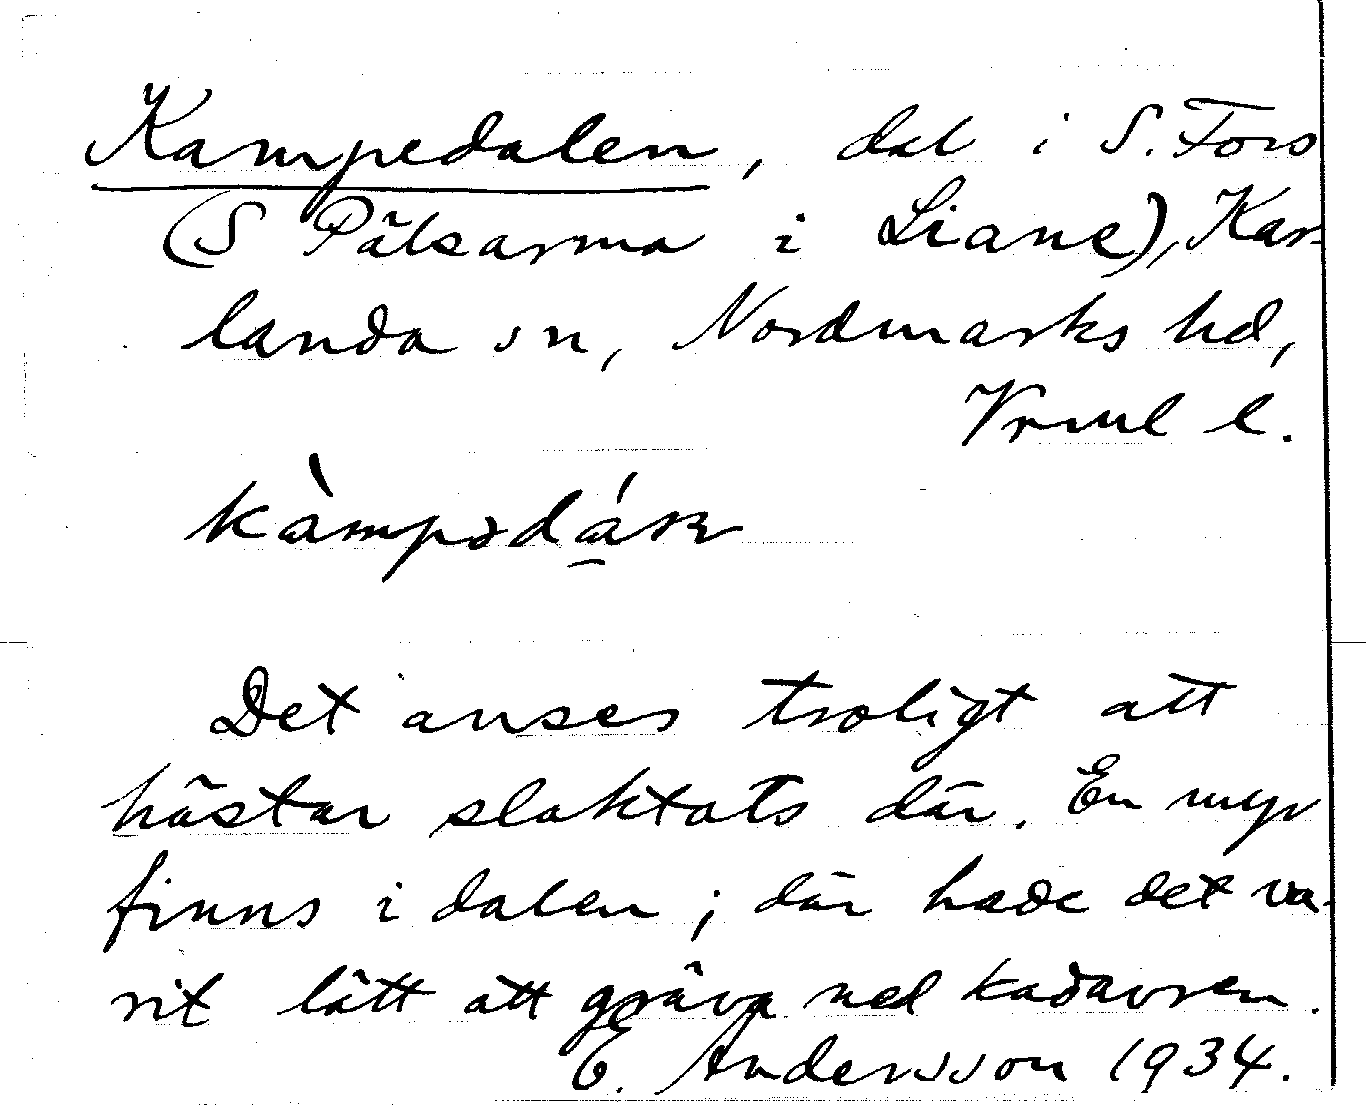 Kampedalen, dal i S. Fors
(S Pälsarma i Liane), Kar-
landa sn, Nordmarks hd,
Vrml l.
kàmpədá
Det anses troligt att
hästar slaktats där. En myr
finns i dalen; där hade det va-
rit lätt att gräva ned kadavren.
E. Andersson 1934.